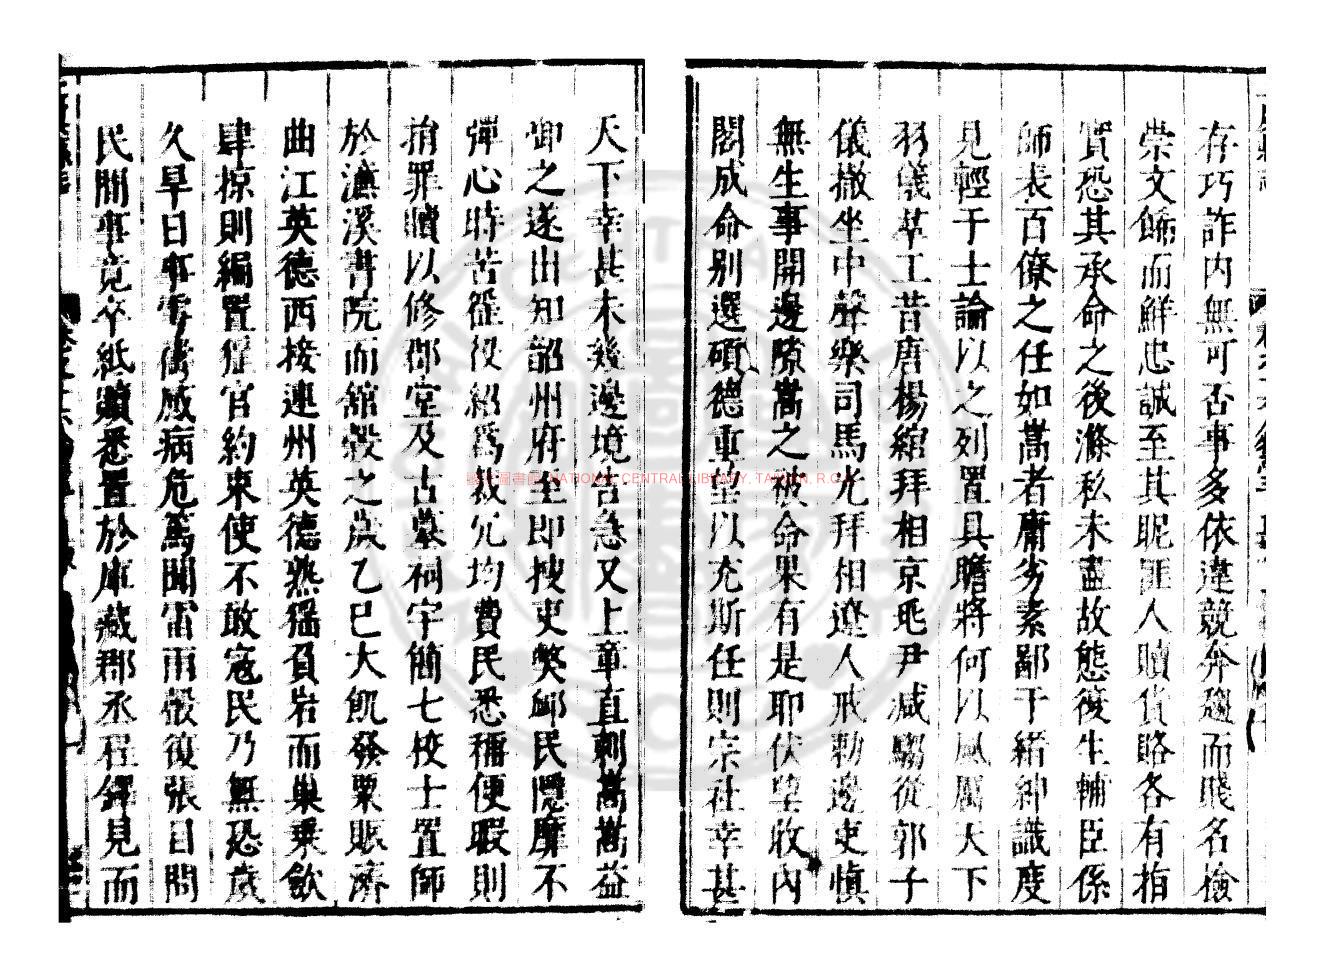 存巧詐内無可否事多依違競奔趨而賤名檢
榮文飾而鮮忠誠至其昵匪人贖貨賂各有指
實恐其承命之後滌私未盡故態復生輔臣係
師表百僚之任如嵩者庸劣素鄙于縉紳識度
見輕于士論以之列置具瞻將何以風厲天下
羽儀羣工昔唐楊綰拜相京兆尹减騶從郭子
儀撤坐中聲樂司馬光拜相遼人戒勅邊吏慎
無生事開邊隙嵩之被命果有是耶伏望收内
閣成命别選碩德重望以充斯任則宗社幸甚
天下幸甚未幾邊境告急又上章直刺嵩嵩益
卹之遂出知韶州府至即搜吏獘邮民隱靡不
殫心時苦徭役紹爲裁冗均費民悉稱便暇則
捐罪贖以修郡堂及古墓祠宇簡七校士置師
於濂溪書院而舘穀之歲乙巳大飢發粟賑濟
曲江英德西接連州英德熟猺負岩而巢乗飲
肆掠則編置猺官約束使不敢寇民乃無恐歲
久旱日事雩禱成病危篤聞雷雨殽復張目問
民間事竟卒紙贖悉置於庫藏郡丞程鐸見而
國家圖書館 NATIONAL CENTRAL LIBRARY, TAIWAN, R.O.C